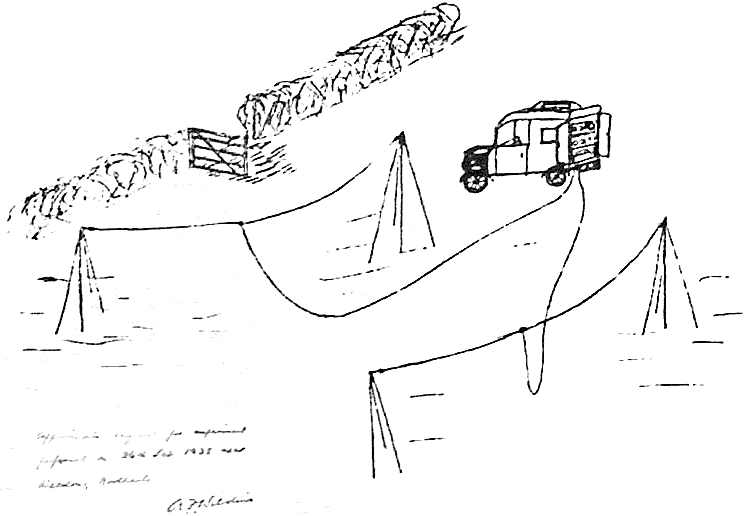 Approximate layout for experiment
performed on 26th Feb 1935 near
Weedon, Northants
A F Wilkins